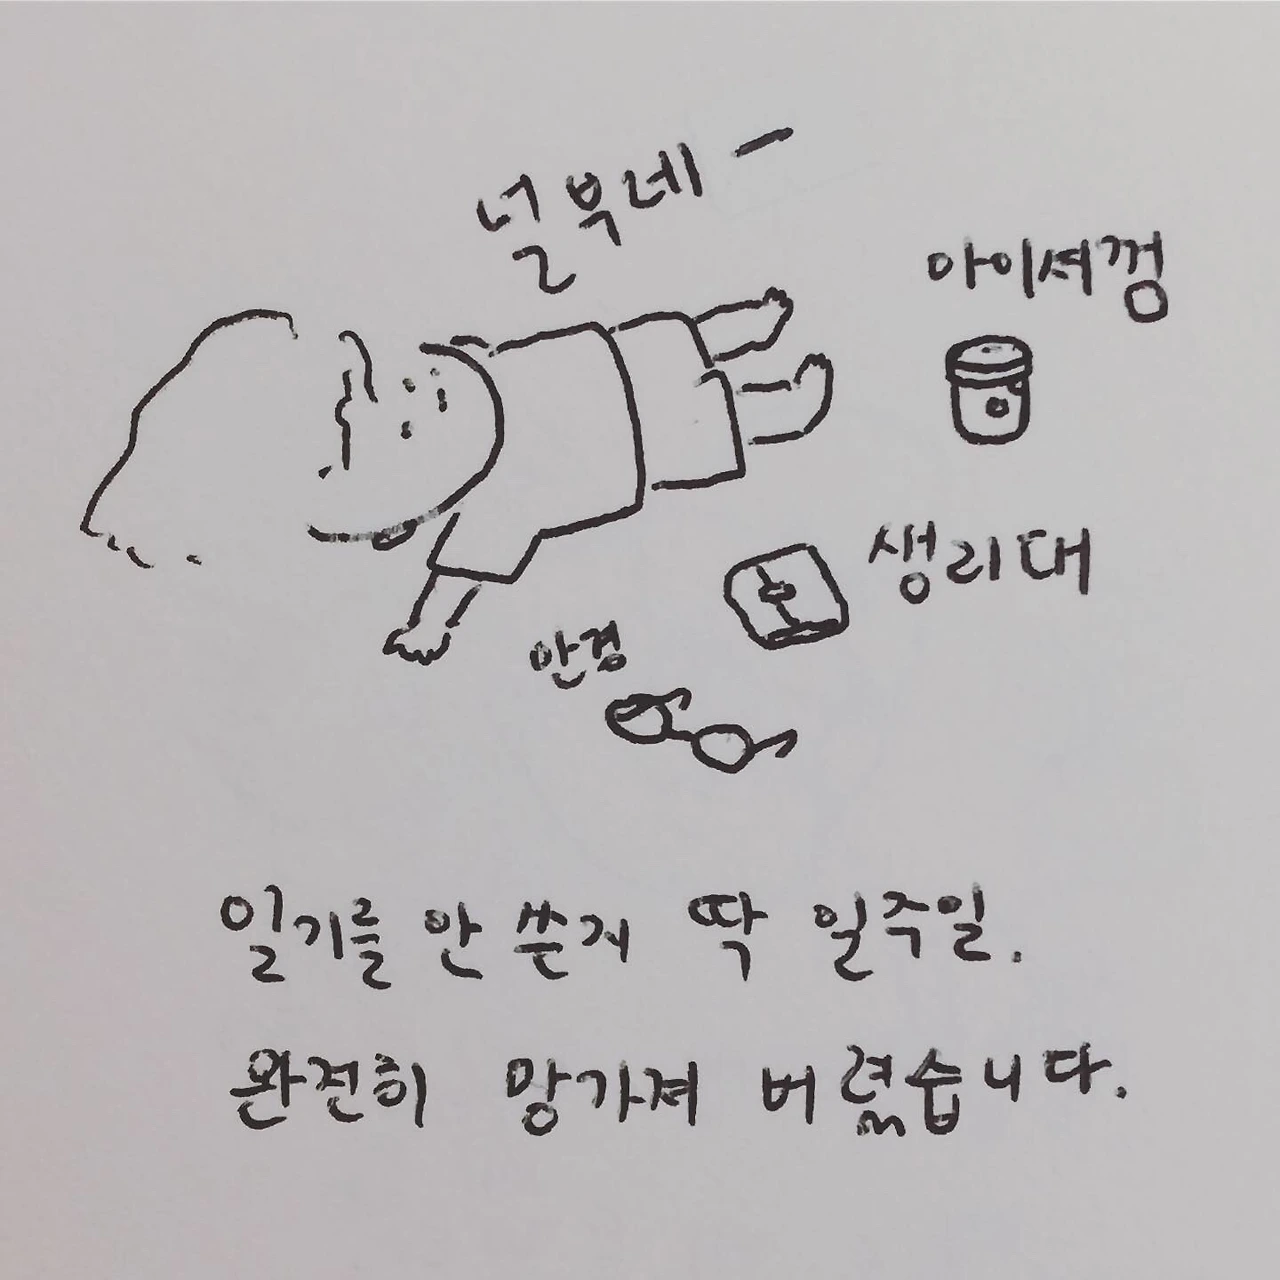 널부네 -
아이셔껌
생리대
안경
일기를 안 쓴지 딱 일주일.
완전히 망가져 버렸습니다.